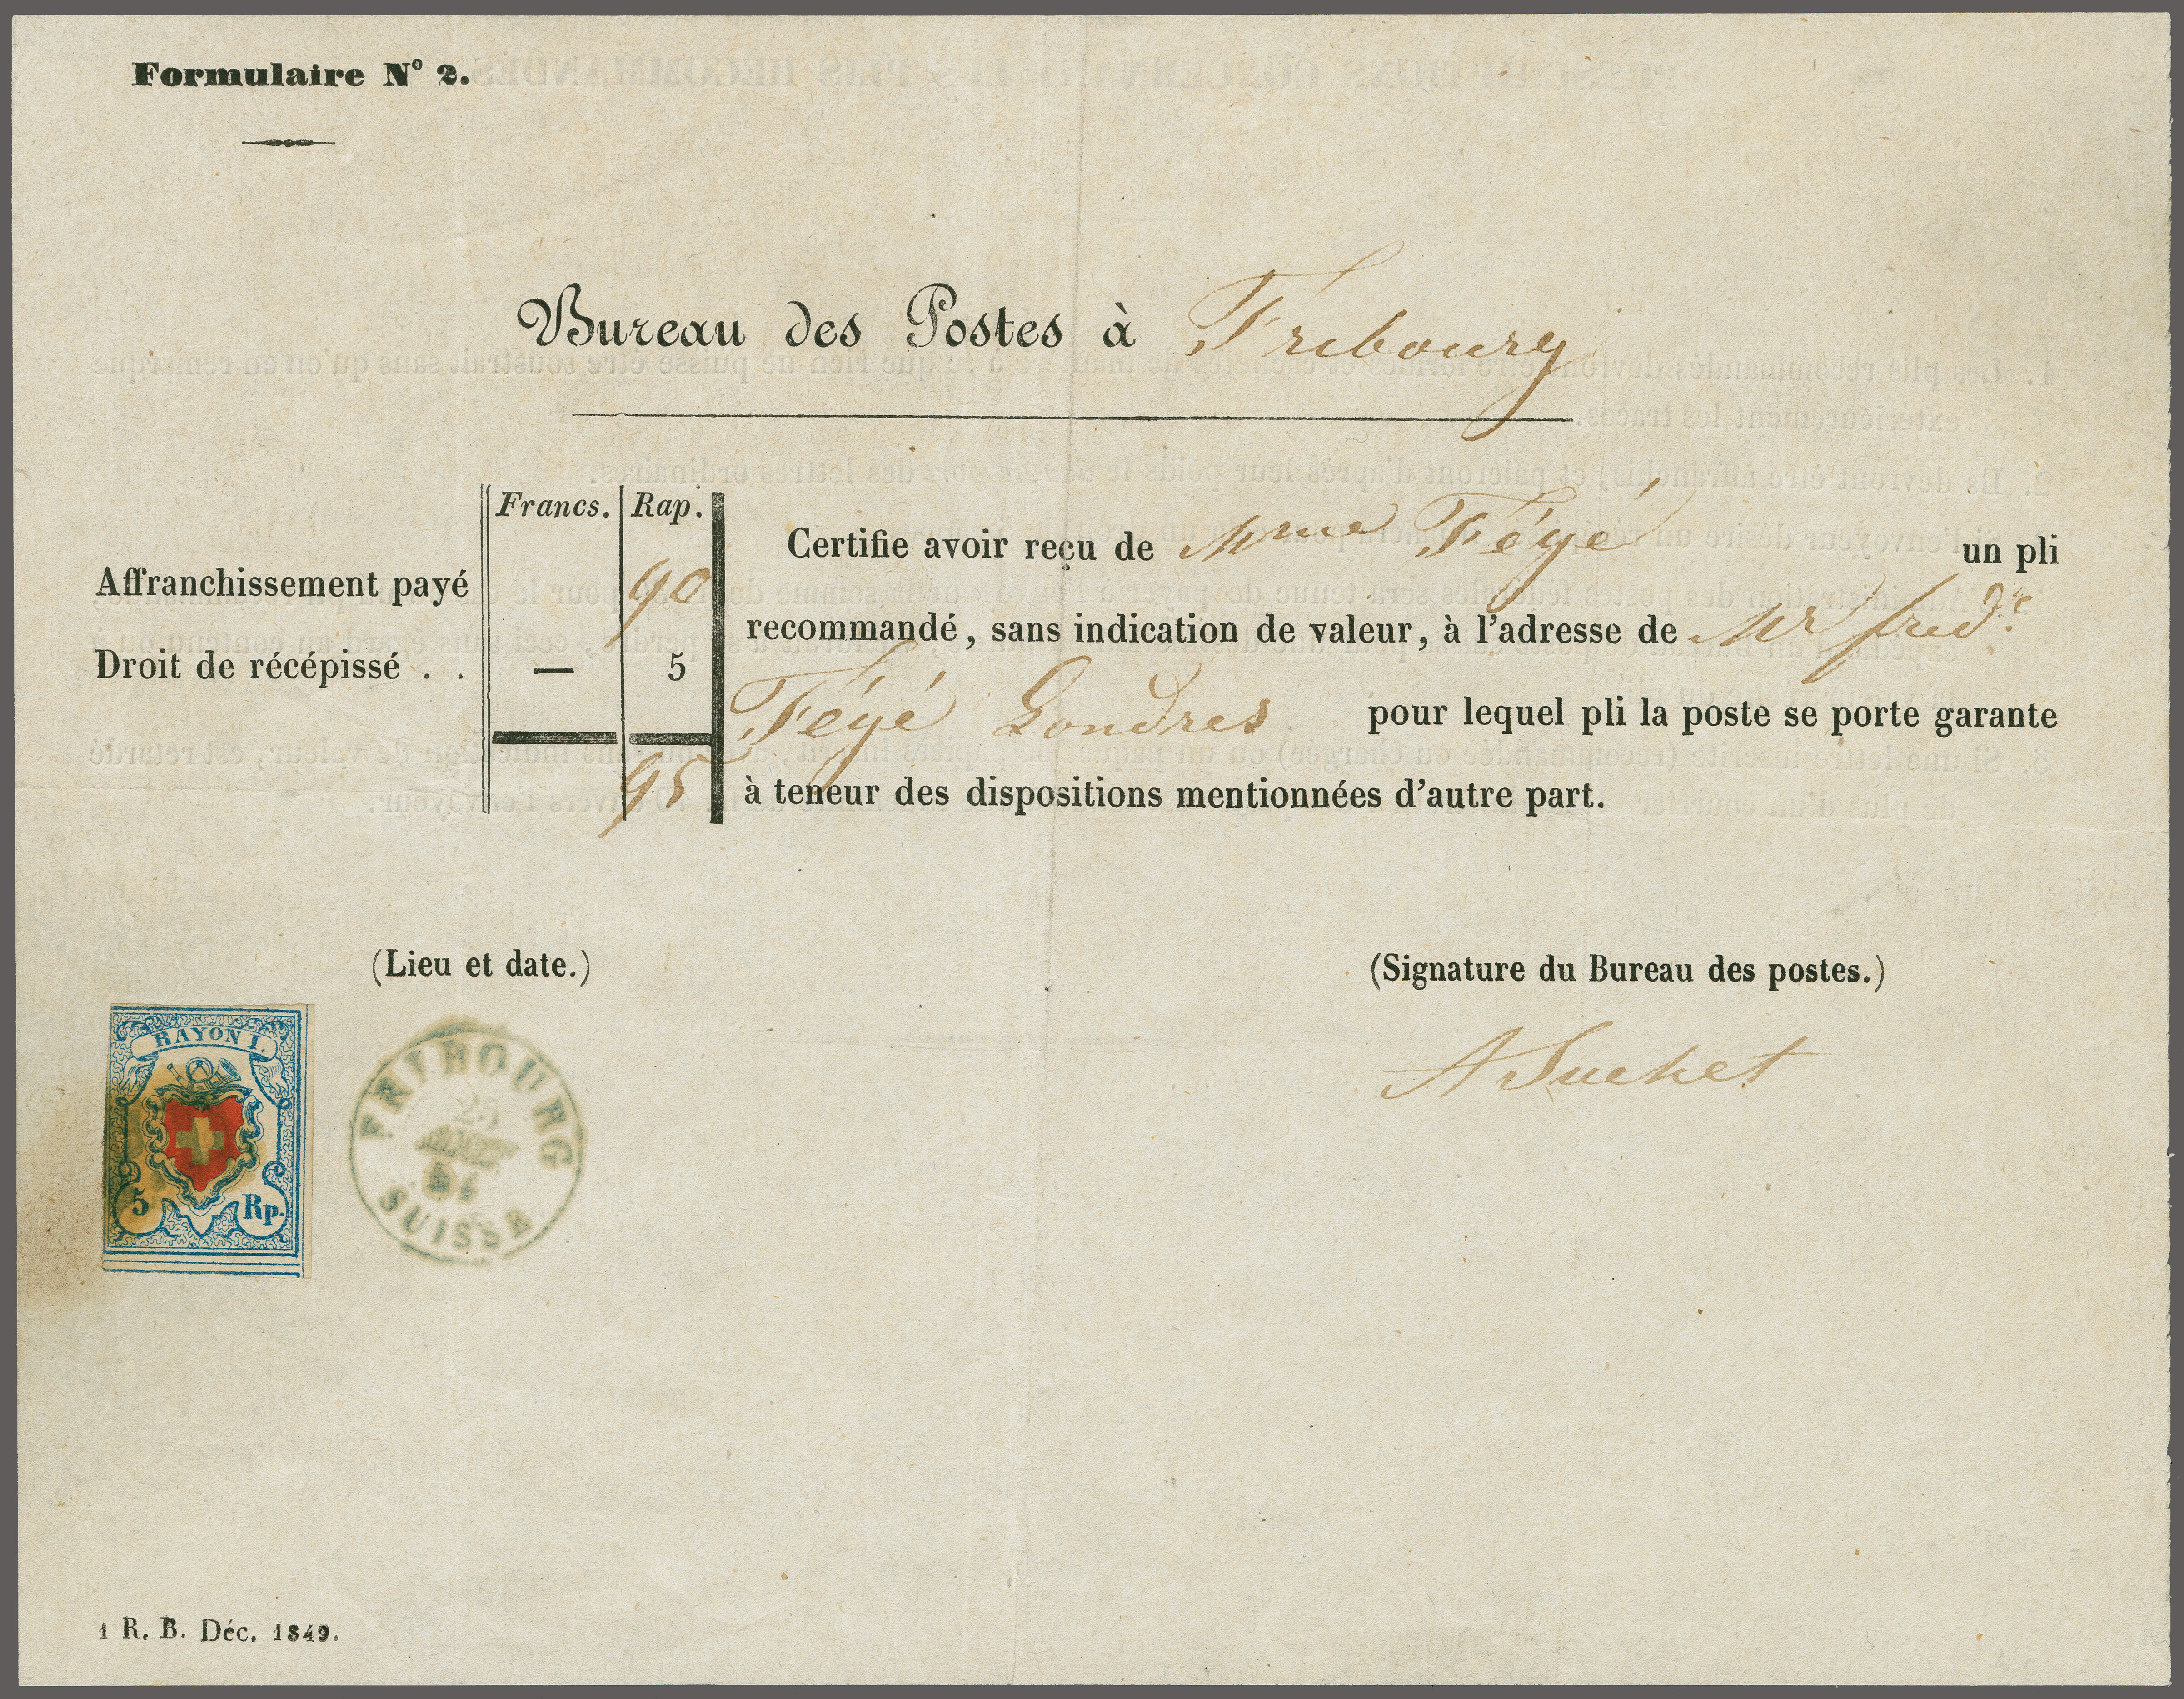 Formulaire Nº 2.
Bureau des Postes à Fribourg
Francs. Rap.
Certifie avoir reçu de Mme Féyé un pli
Affranchissement payé 90
recommandé, sans indication de valeur, à l'adresse de Mr fredc.
Droit de récépissé . . — 5
Féyé Londres pour lequel pli la poste se porte garante
95
à teneur des dispositions mentionnées d'autre part.
(Lieu et date.)
(Signature du Bureau des postes.)
RAYON I.
5 Rp.
FRIBOURG
SUISSE
A Suchet
1 R. B. Déc. 1849.